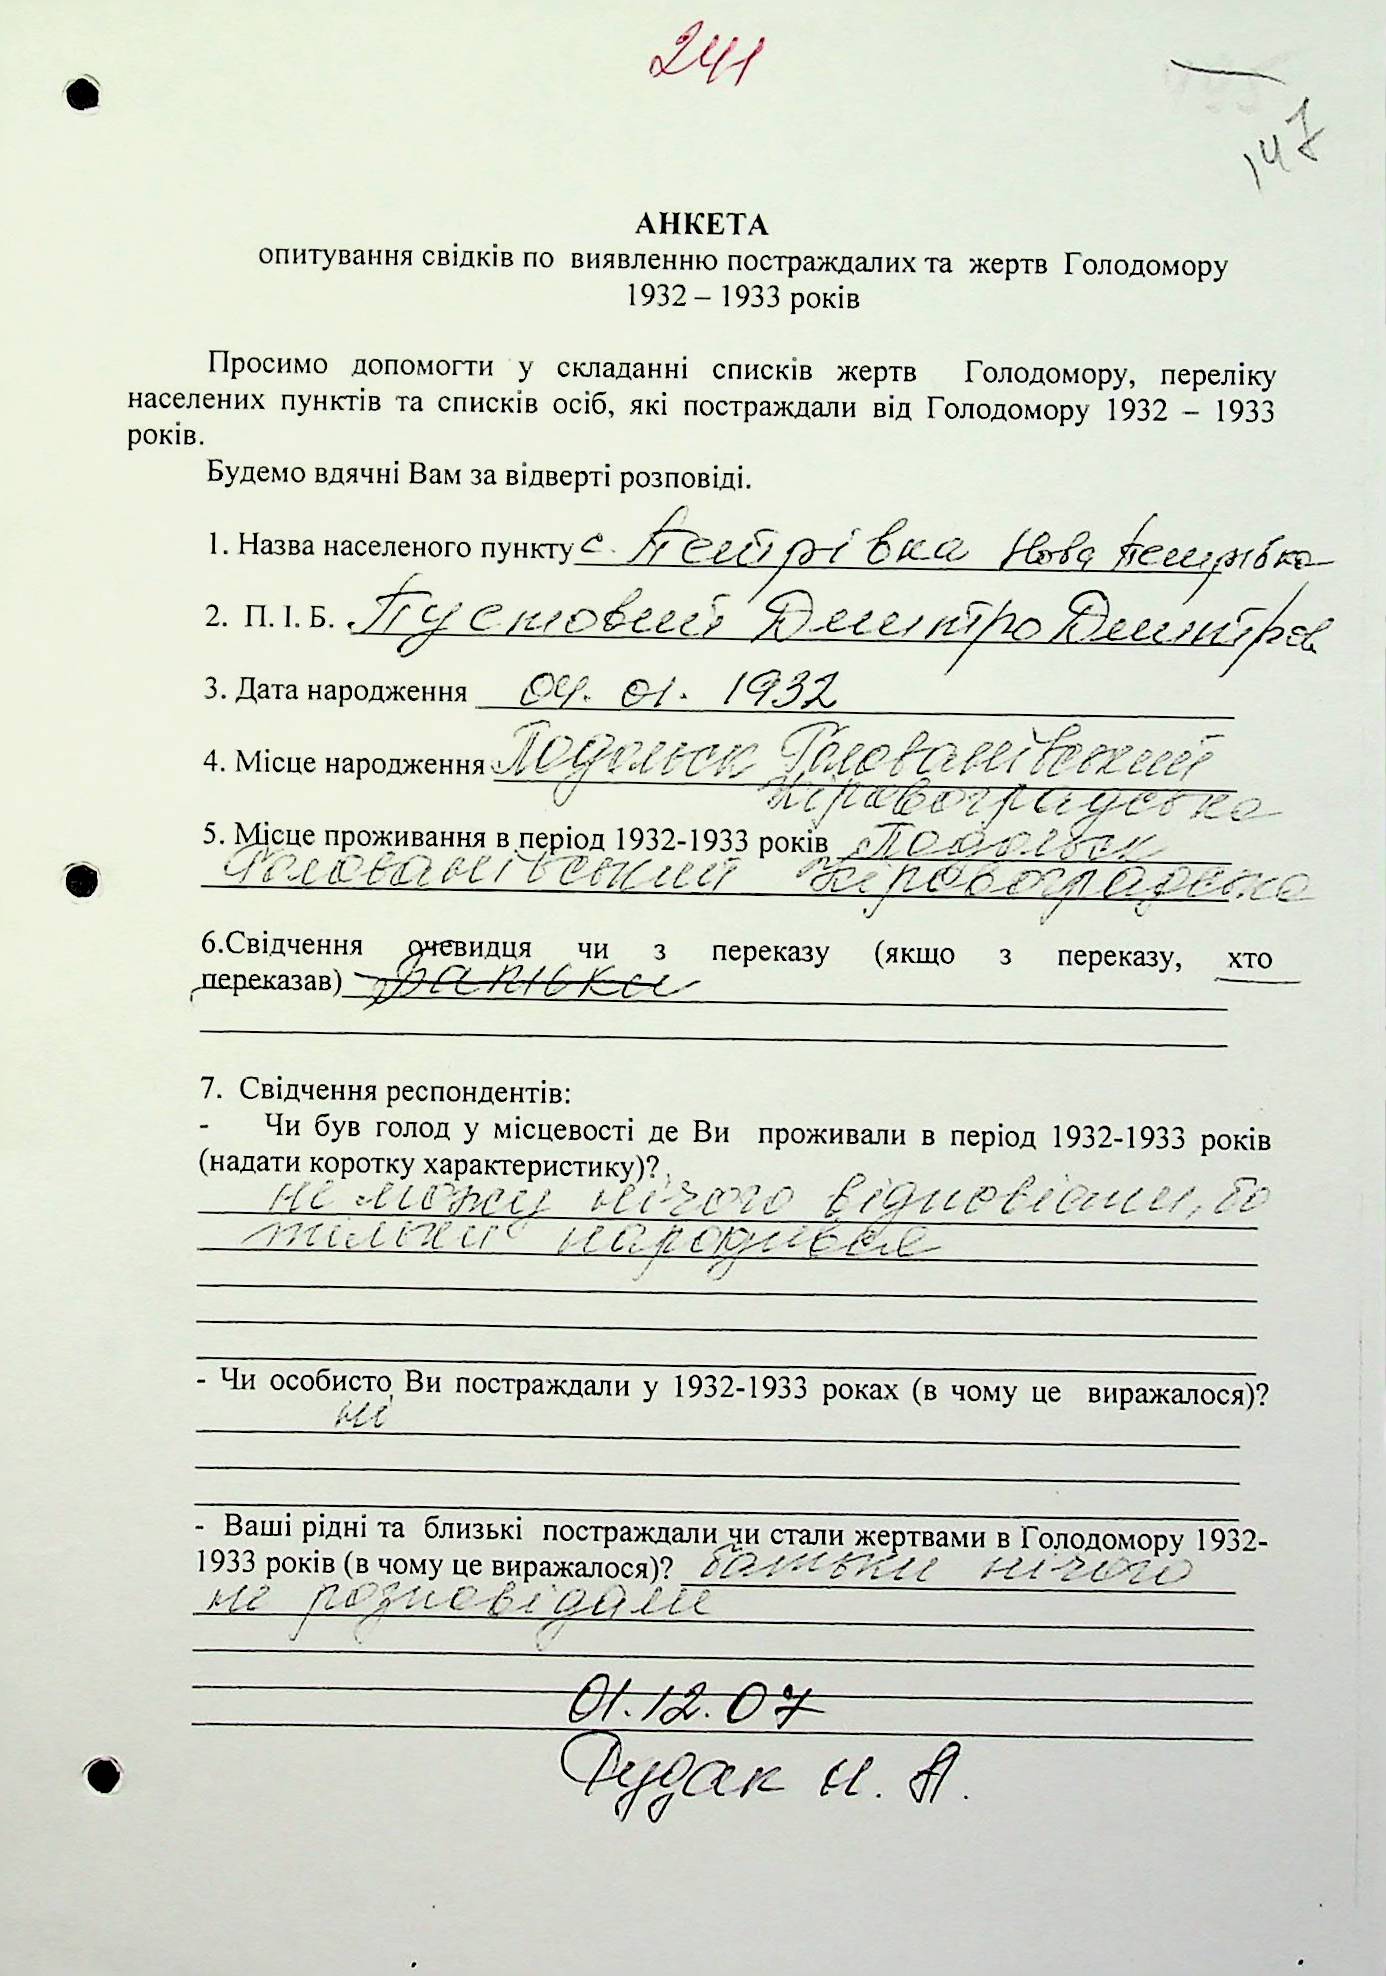 241
147
АНКЕТА
опитування свідків по виявленню постраждалих та жертв Голодомору
1932 – 1933 років
Просимо допомогти у складанні списків жертв Голодомору, переліку
населених пунктів та списків осіб, які постраждали від Голодомору 1932 – 1933
років.
Будемо вдячні Вам за відверті розповіді.
1. Назва населеного пункту с. Петрівка Нова Петрівка
2. П. І. Б. Пустовий Дмитро Дмитров
3. Дата народження 04. 01. 1932
4. Місце народження Подольск Голованівський
Кіровоградська
5. Місце проживання в період 1932-1933 років Подольск
Голованівський Кіровоградська
6.Свідчення очевидця чи з переказу (якщо з переказу, хто
переказав)
7. Свідчення респондентів:
- Чи був голод у місцевості де Ви проживали в період 1932-1933 років
(надати коротку характеристику)?
не можу нічого відповісти, бо
тільки народився
- Чи особисто Ви постраждали у 1932-1933 роках (в чому це виражалося)?
ні
- Ваші рідні та близькі постраждали чи стали жертвами в Голодомору 1932-
1933 років (в чому це виражалося)? батьки нічого
не розповідали
01.12.07
Дудак Н. А.